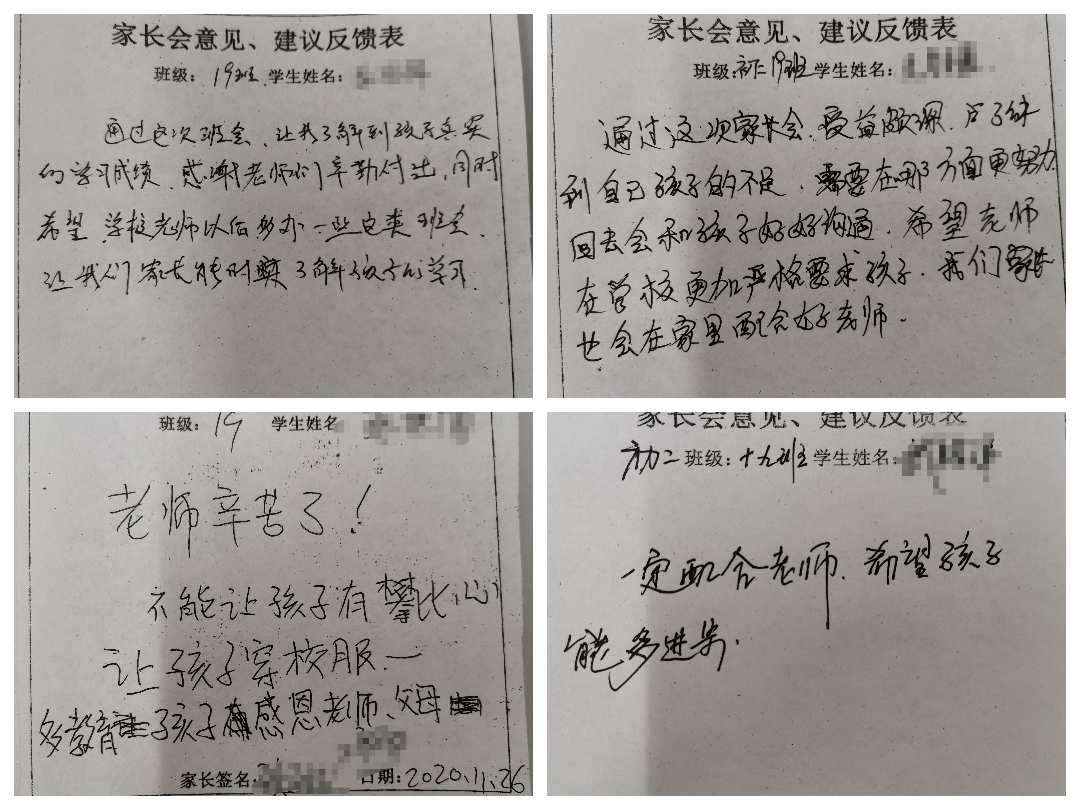 家长会意见、建议反馈表
班级: 19班 学生姓名:
通过这次班会、让我了解到孩子真实
的学习成绩.感谢老师们辛勤付出,同时
希望、学校老师以后多办一些这类班会、
让我们家长能时时了解孩子的学习.
家长会意见、建议反馈表
班级:初二19班 学生姓名:
通过这次家长会.受益颇深.了解
到自己孩子的不足.需要在哪方面更努力
回去会和孩子好好沟通.希望老师
在学校更加严格要求孩子.我们家长
也会在家里配合好老师.
班级: 19 学生姓名
老师辛苦了!
不能让孩子有攀比心
让孩子穿校服.一
多教育孩子感恩老师、父母
家长签名 日期: 2020.11.26
家长会意见、建议反馈表
初二班级:十九班 学生姓名:
一定配合老师.希望孩子
能多进步.